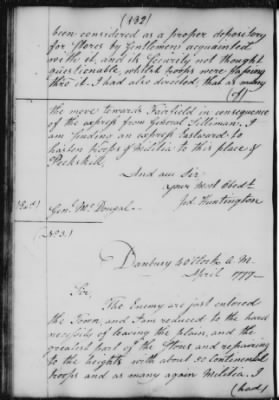 (132)
been considered as a proper depository
for Stores by Gentlemen acquainted
with it, and its Security not thought
questionable, whilst troops were passing
thro' it. I had also directed, that as
(of)
the move towards Fairfield in consequence
of the express from General Silleman. I
am sending an express Eastward to
hasten troops & Militia to this place &
Peekskill.
And am Sir
Your Most Obedt.
Jed Huntington
Genl. McDougal.
(No 3.)
Danbury 4 oClock A. M.
April 1777
Sir,
The Enemy are just entered
the Town, and I am reduced to the hard
necessity of leaving the plain, and the
greatest part of the Stores and repairing
to the heights with about 50 Continental
troops and as many again Militia. I
(had)